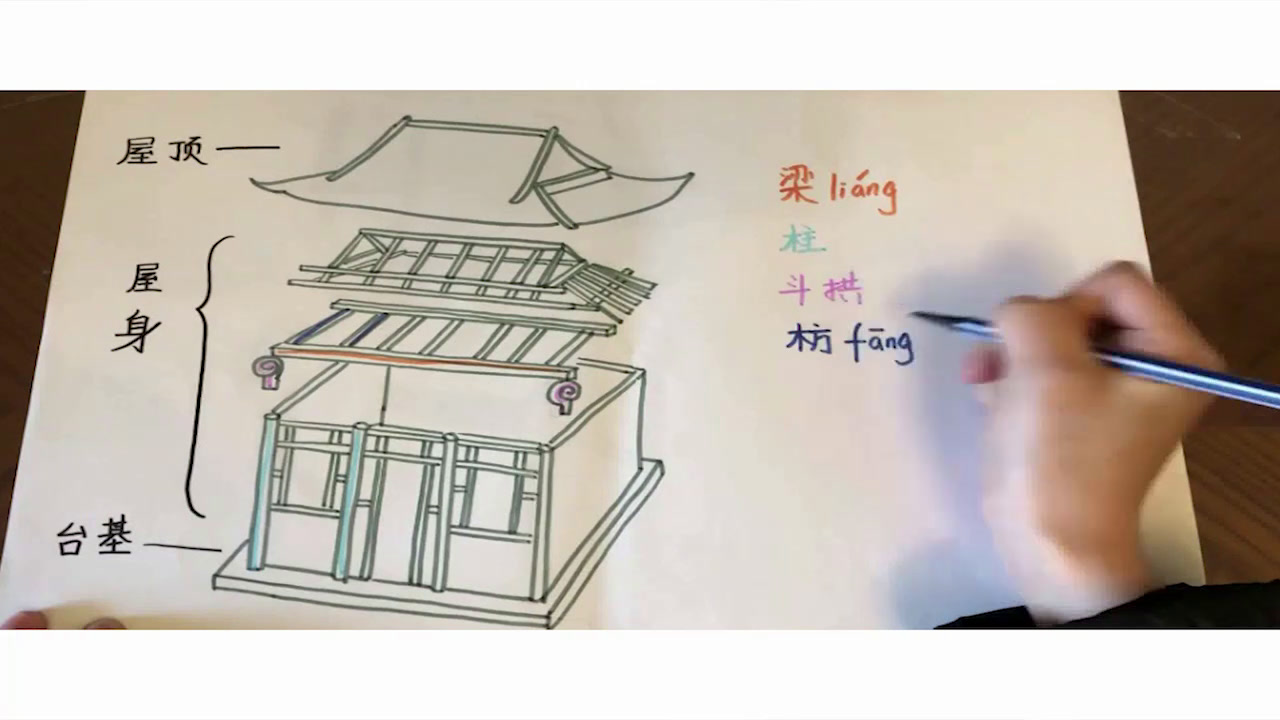 屋顶
屋
身
台基
梁 liáng
柱
斗拱
枋 fāng